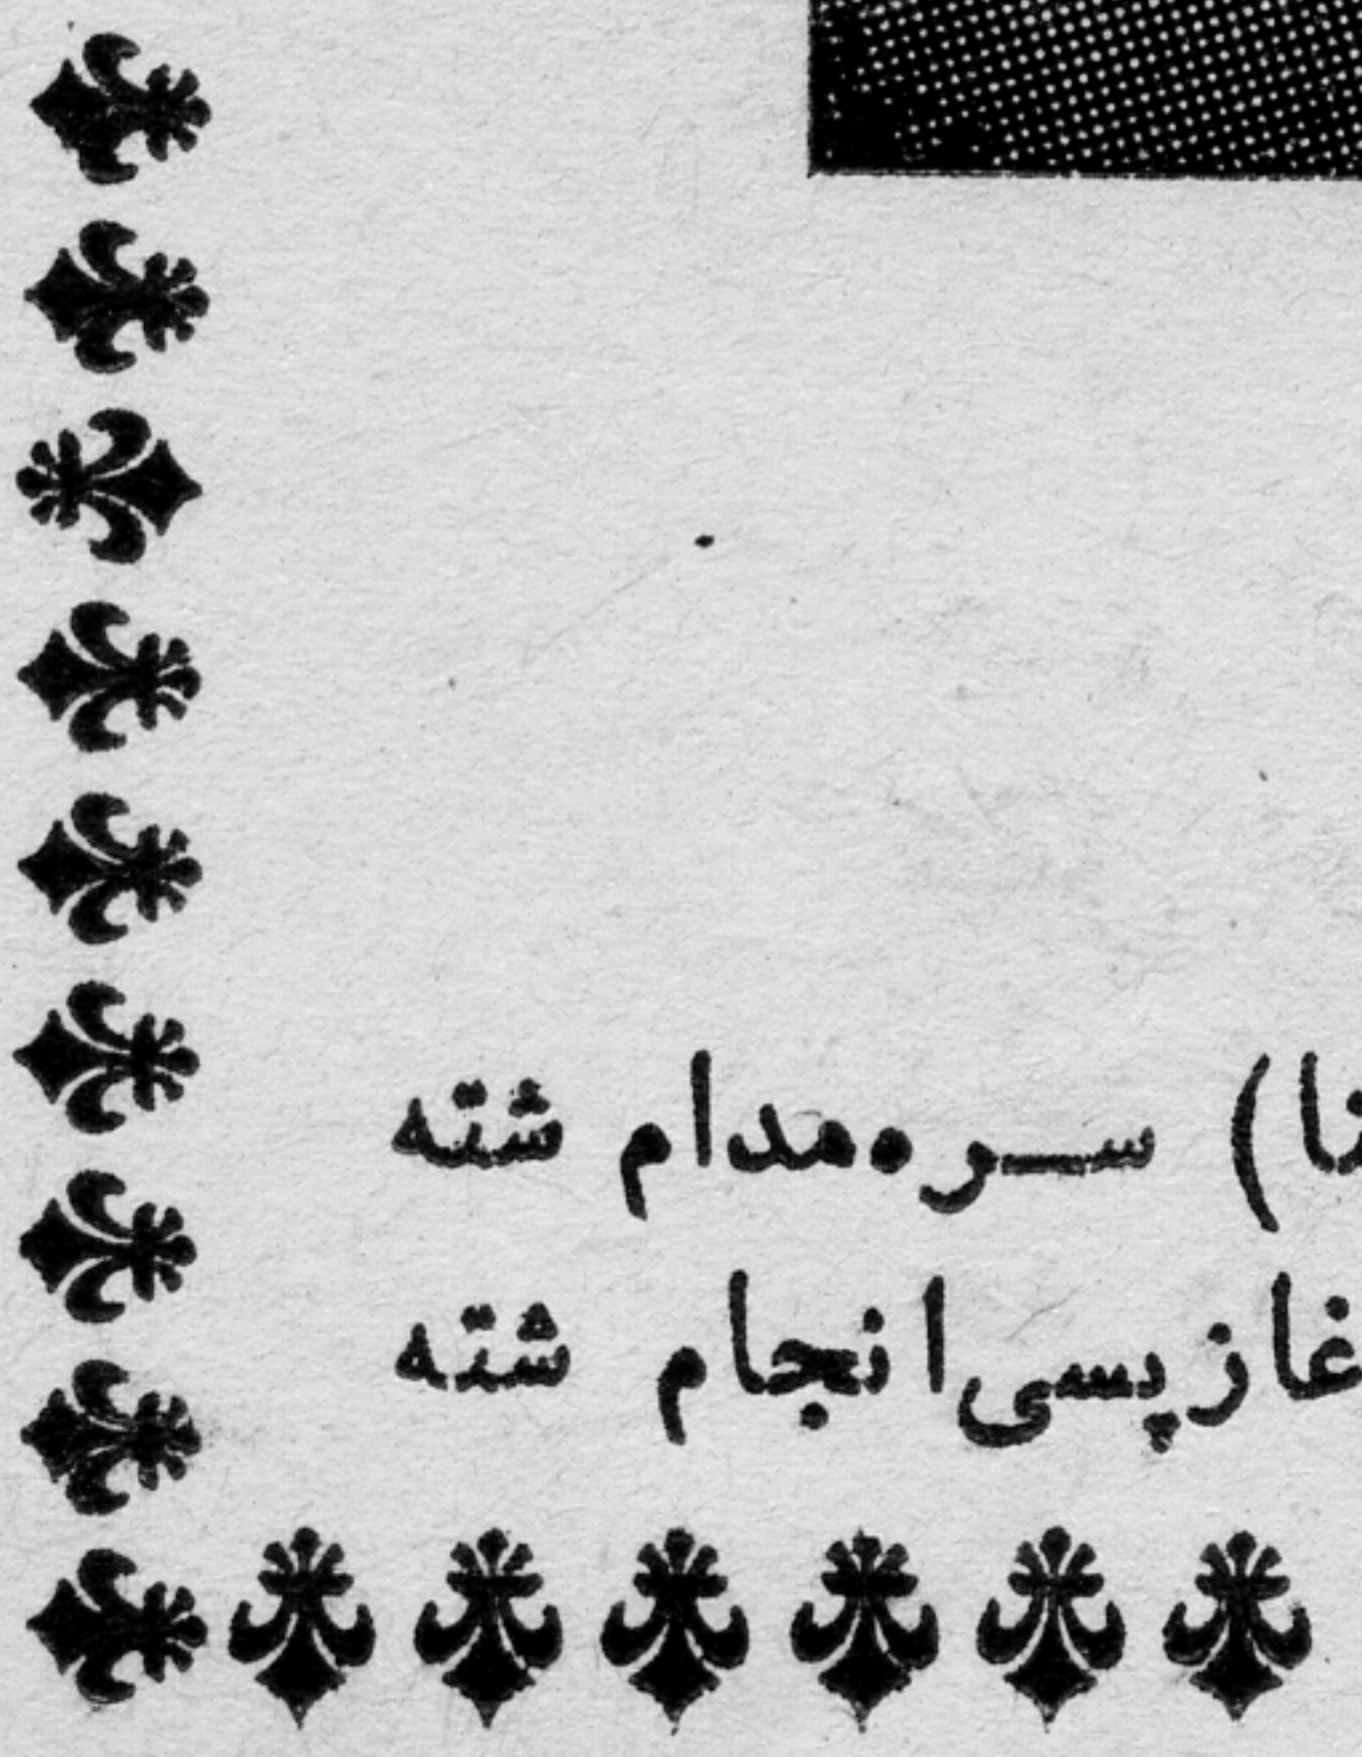 نا) سره مدام شته
غاز پسی انجام شته